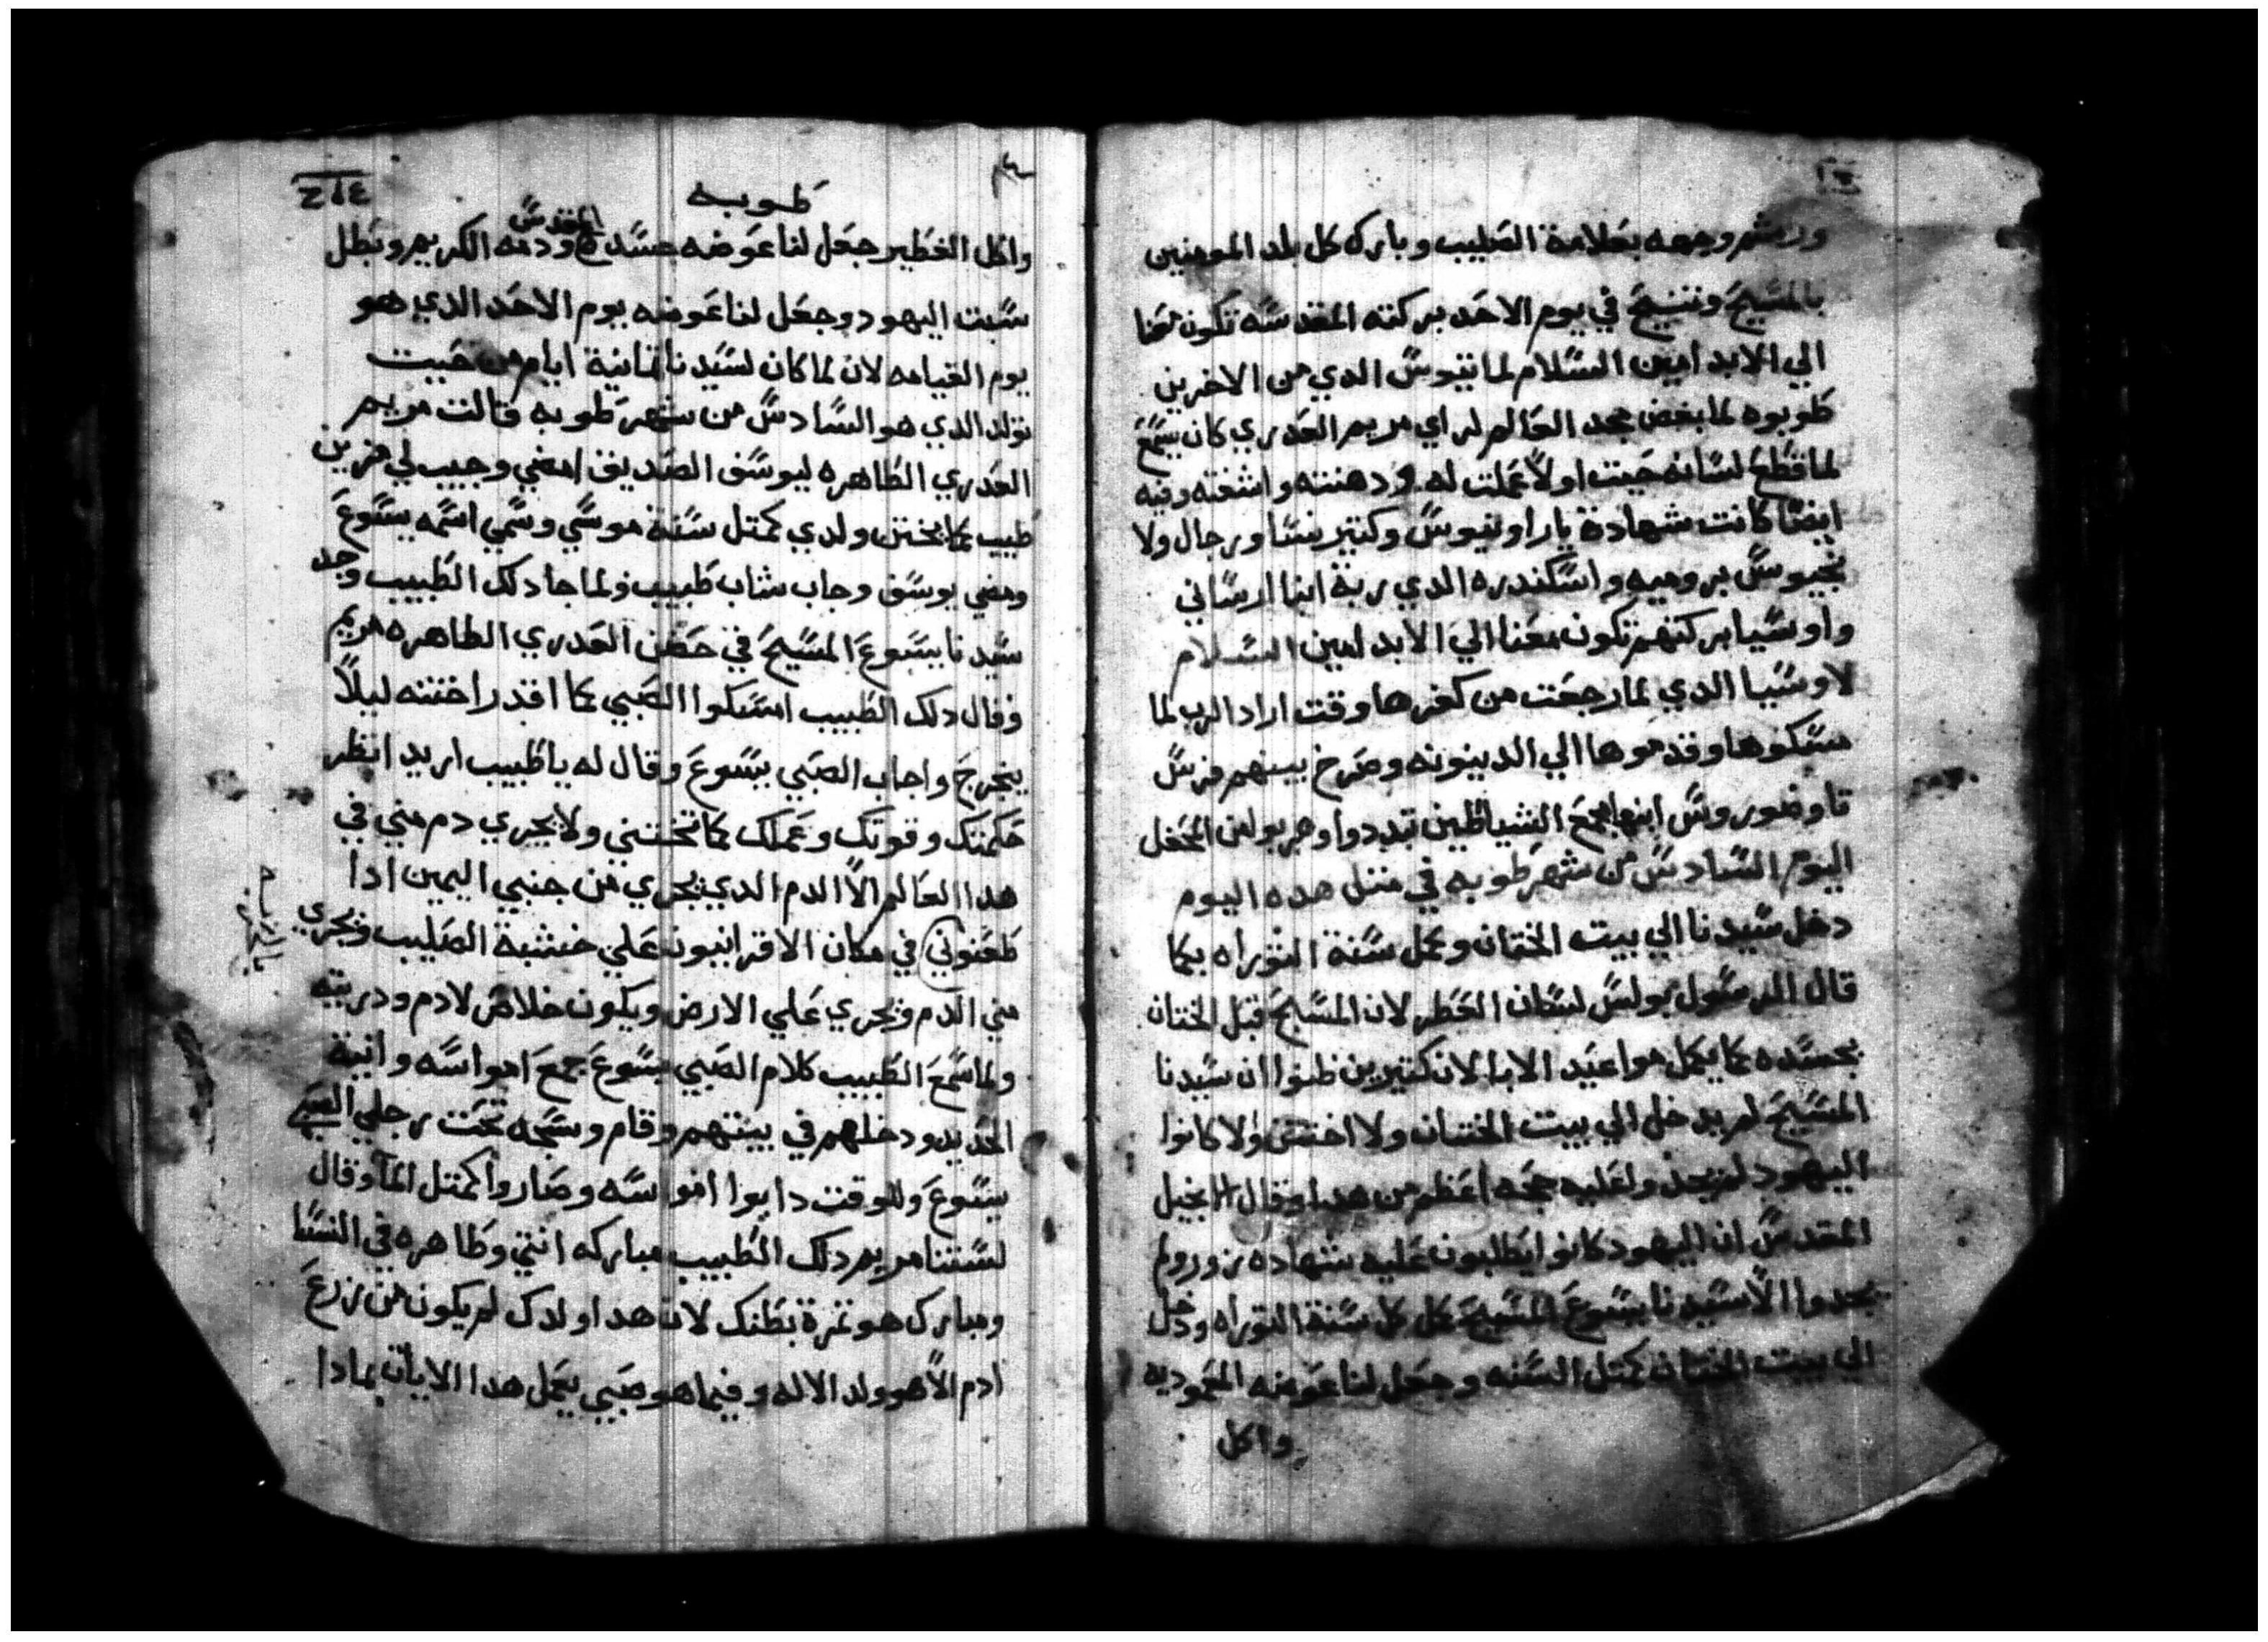 ورشم وجهه بعلامة الصليب وبارك كل بلد المومنين
بالمسيح وتنيح في يوم الاحد بركته المقدسه تكون معنا
الي الابد امين السلام لماتيوس الدي من الاخرين
طوبوه لما بغض مجد العالم لم راي مريم العدري كان يسمع
لما قطع لسانه حيت اولا عملت له ودهنته واشفته وفيه
ايضا كانت شهادة يار اوتيوس وكتير نسا ورجال ولا
بروميه واسكندره الدي ربة انبا ارساني
واوسيا بركتهم تكون معنا الي الابد امين السلام
لاوسيا الدي لما رجعت من كفرها وقت اراد الرب لما
مسكوها وقدموها الي الدينونه وصرخ بينهم فرس
تاوضوروس ابنها جمع الشياطين تبددوا وهربوا من المحفل
اليوم السادس من شهر طوبه في متل هده اليوم
دخل سيدنا الي بيت الختان وعمل سنة التوراه بما
قال الرسول بولس لسان العطر لان المسيح قبل الختان
بجسده لما يكمل مواعيد الابا لان كتيرين ظنوا ان سيدنا
المسيح لم يدخل الي بيت الختان ولا اختتن ولا كانوا
اليهود لم يجدوا عليه حجه اعظم من هدا وقال الانجيل
المقدس ان اليهود كانوا يطلبون عليه شهاده زور ولم
يجدوا الا سيدنا يسوع المسيح عمل كل سنة التوراه ودخل
الي بيت الختان كمتل السنه وجعل لنا عوضه المعموديه
واكل
طوبه
واكل الفطير جعل لنا عوضه جسده المقدس ودمه الكريم وبطل
سبت اليهود وجعل لنا عوضه يوم الاحد الدي هو
يوم القيامه لان لما كان لسيدنا تمانية ايام من حيت
تولد الدي هو السادس من شهر طوبه قالت مريم
العدري الطاهره ليوسف الصديق امضي وجيب لي مزين
طبيب لما يختن ولدي كمتل سنة موسي وسمي اسمه يسوع
ومضي يوسف وجاب شاب طبيب ولما جا دلك الطبيب وجد
سيدنا يسوع المسيح في حضن العدري الطاهره مريم
وقال دلك الطبيب امسكوا الصبي لما اقدر اختنه ليلا
يخرج واجاب الصبي يسوع وقال له يا طبيب اريد انظر
حكمتك وقوتك وعملك لما تختنني ولا يجري دم مني في
هدا العالم الا الدم الدي يجري من جنبي اليمين ادا
طعنوني في مكان الاقرانيون علي خشبة الصليب ويجري
مني الدم ويجري علي الارض ويكون خلاص لادم ودريته
ولما سمع الطبيب كلام الصبي يسوع جمع امواسه وانية
الحديد ودخلهم في بيتهم وقام وسجد تحت رجلي الصبي
يسوع وللوقت دابوا امواسه وصاروا كمتل الما وقال
لستنا مريم دلك الطبيب مباركه انتي وطاهره في النسا
ومبارك هو تمرة بطنك لان هدا ولدك لم يكون من زرع
ادم الا هو ولد الاله وفيما هو صبي يعمل هدا الايات بمادا